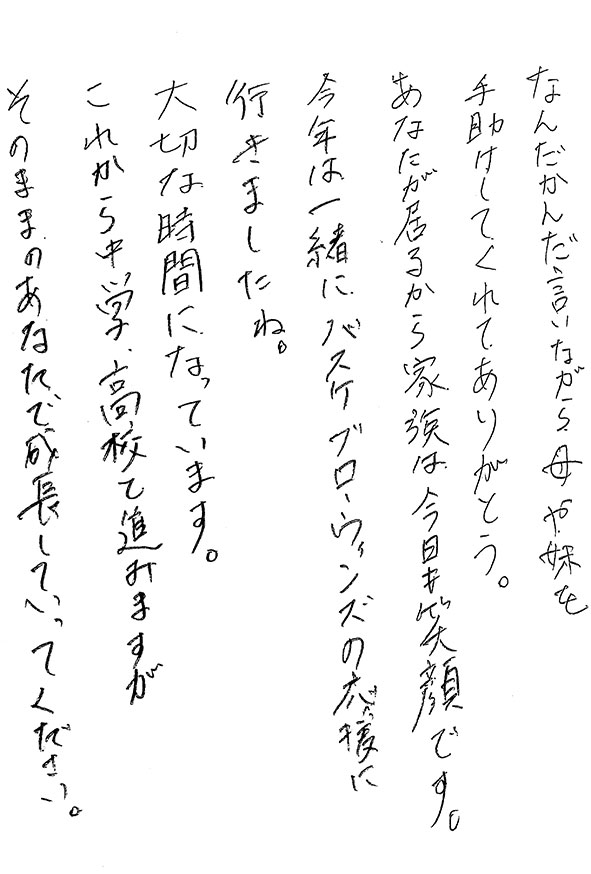 なんだかんだ言いながら母や妹を
手助けしてくれてありがとう。
あなたが居るから家族は今日も笑顔です。
今年は一緒にバスケブローウィンズの応援に
行きましたね。
大切な時間になっています。
これから中学、高校て進みますが
そのままのあなたで成長していってください。